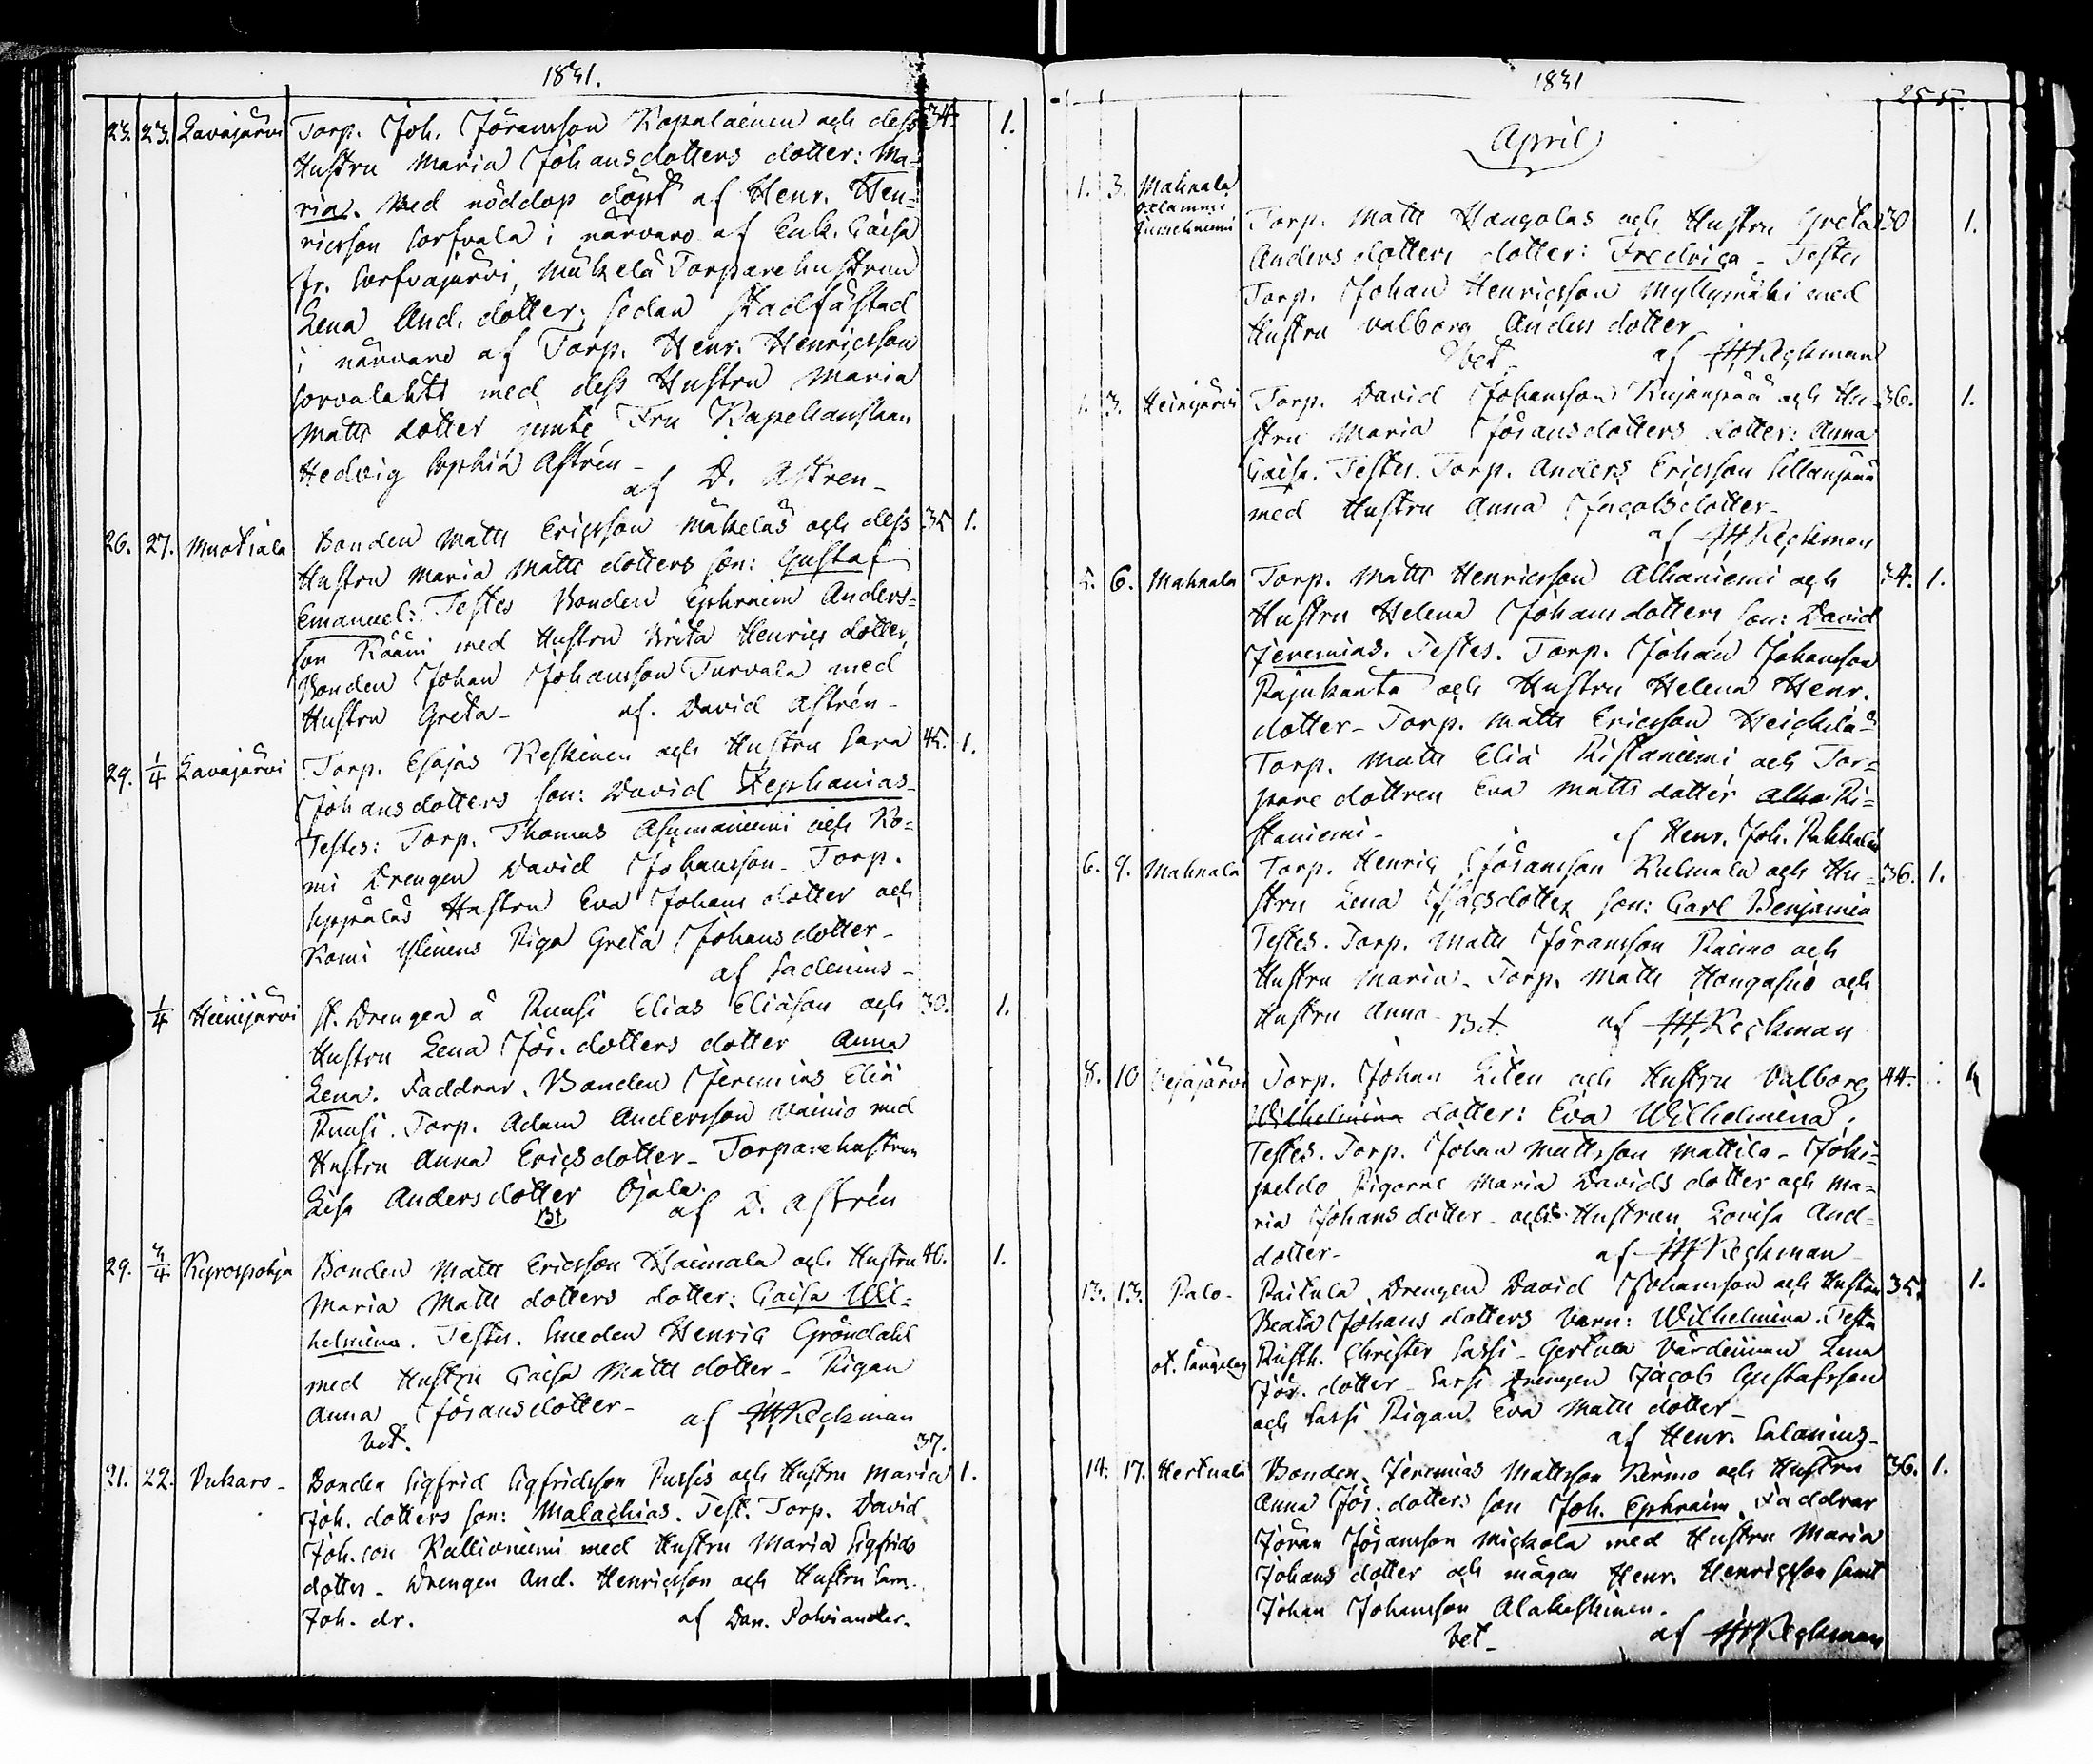 1831.
23. 23. Lavajärvi Torp. Joh. Jöransson Kopalainen och dess 34. 1.
Hustru Maria Johansdotters dotter: Ma=
ria. Med nöddop döpt af Henr. Hen=
ricsson Sorfvala i närvaro af Enk. Caisa
fr. Sorfvajärvi, Mäkelä Torparehustrun
Lena And. dotter; sedan stadfästad
i närvaro af Torp. Henr. Henricsson
Sorvalahti med dess Hustru Maria
Matts dotter jemte Fru Kapellanskan
Hedvig Sophia Astrén -
af D. Astren -
26. 27. Muotiala Bonden Matts Ericsson Mäkeläs och dess 35 1.
Hustru Maria Matts dotters son: Gustaf
Emanuel: Testes Bonden Ephraim Anders=
son Rääni med Hustru Brita Henrics dotter,
Bonden Johan Johansson Turvala med
Hustru Greta - af. David Astrén -
29. 1/4 Lavajärvi Torp. Esajas Keskinen och Hustru Sara 45. 1.
Johansdotters son: David Zephanias -
Testes: Torp. Thomas Asumaniemi och Ko=
mi Drengen David Johansson - Torp.
Seppäläs Hustru Eva Johans dotter och
Komi Ylinens Piga Greta Johans dotter -
af Sadenius -
1/4 Heinijärvi st. Drengen å Ruusi Elias Eliason och 30. 1.
Hustru Lena Jör. dotters dotter Anna
Lena. Faddrar. Bonden Jeremias Eliä
Ruusi. Torp. Adam Andersson Vainio med
Hustru Anna Ericsdotter - Torparehustrun
Lisa Andersdotter Ojala.
Bt af D. Astrén
29. 3/4 Kyrospohja Bonden Matts Ericsson Haimala och Hustru 40. 1.
Maria Matts dotters dotter: Caisa Wil=
helmina. Testes. Smeden Henric Gröndahl
med Hustru Caisa Matts dotter - Pigan
Anna Jöransdotter - af Keckman
bet. 37.
21. 22. Dukaro - Bonden Sigfrid Sigfridsson Pussis och Hustru Maria 1.
Joh. dotters son: Malachias. Test. Torp. David
Joh. son Kallioniemi med Hustru Maria Sigfrids
dotter - Drengen And. Henricsson och Hustru Sara
Joh. dr. af Dan. Polviander.
1831
255.
April
1. 3. Mahnala
Torp. Matts Hangolas och Hustru Greta 30 1.
Anders dotters dotter: Fredrica - Testes
Torp. Johan Henricsson Myllymäki med
Hustru Valborg Anders dotter
bet. af Keckman
1. 3. Heinijärvi Torp. David Johansson Kujanpää och Hu= 36. 1.
stru Maria Jöransdotters dotter: Anna
Caisa. Testes. Torp. Anders Ericsson Sillanpää
med Hustru Anna Jacobsdotter -
af Keckman
5. 6. Mahnala Torp. Matts Henricsson Alhaniemi och 34. 1.
Hustru Helena Johansdotters son: David
Jeremias. Testes. Torp. Johan Johansson
Rajukanta och Hustru Helena Henr.
dotter - Torp. Matts Ericsson Heickilä -
Torp. Matts Eliä Ristaniemi och Tor=
pare dottren Eva Matts dotter Ri=
staniemi - af Henr. Joh. Pakkalin
6. 9. Mahnala Torp. Henric Jöransson Kulmala och Hu= 36. 1.
stru Lena Isacsdotter son: Carl Benjamin
Testes. Torp. Matts Jöransson Raimo och
Hustru Maria - Torp. Matts Hongasiio och
Hustru Anna - Bet. af Keckman
8. 10 Torp. Johan Liten och Hustru Valborg 44. 1
Wilhelmina dotter: Eva Wilhelmina.
Testes. Torp. Johan Mattsson Mattila - Joki=
peldo Pigorne Maria Davids dotter och Ma=
ria Johansdotter - och Hustrun Lovisa And=
dotter - af Keckman
13. 13. Palo - Raitula Drengen David Johansson och Hustru 35. 1.
Beata Johans dotters barn: Wilhelmina. Testes
Rusth. Christer Sassi - Gertula Värdinnan Lena
Jör. dotter Sassi Drengen Jacob Gustafsson
och Sassi Pigan Eva Matts dotter -
af Henr. Salonius -
14. 17. Hertuala Bonden Jeremias Mattsson Kermo och Hustru 36. 1.
Anna Jör. dotters son Joh. Ephraim. Faddrar
Jöran Jöransson Mickola med Hustru Maria
Johans dotter och mågen Henr. Henricsson samt
Johan Johansson Alakeskinen.
bet - af Keckman